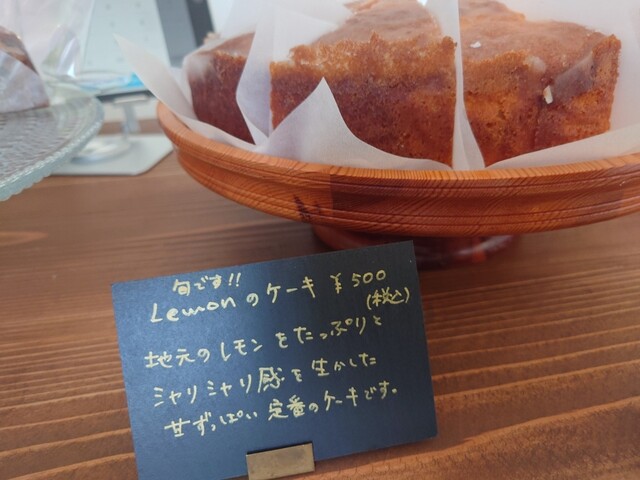 旬です!!
Lemonのケーキ ¥500
(税込)
地元のレモンをたっぷりと
シャリシャリ感を生かした
甘ずっぱい定番のケーキです。